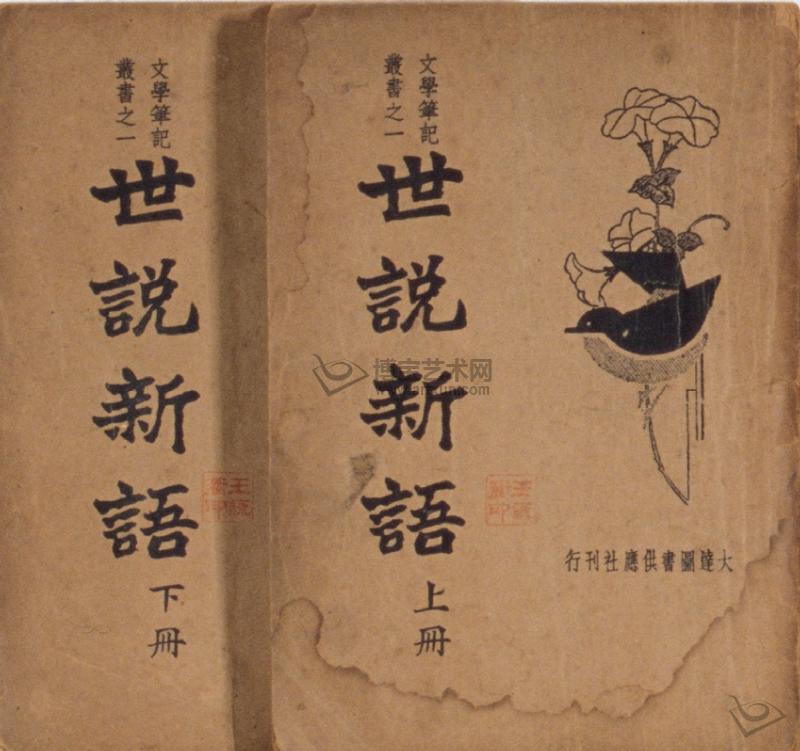 文學筆記
叢書之一
世説新語
上冊
大達圖書供應社刊行
文學筆記
叢書之一
世説新語
下冊
博宝艺术网